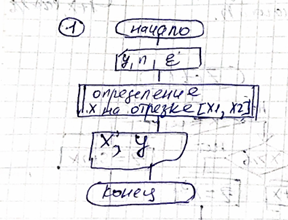 1
начало
y, n, ε
определение
x на отрезке [x1, x2]
x, y
конец